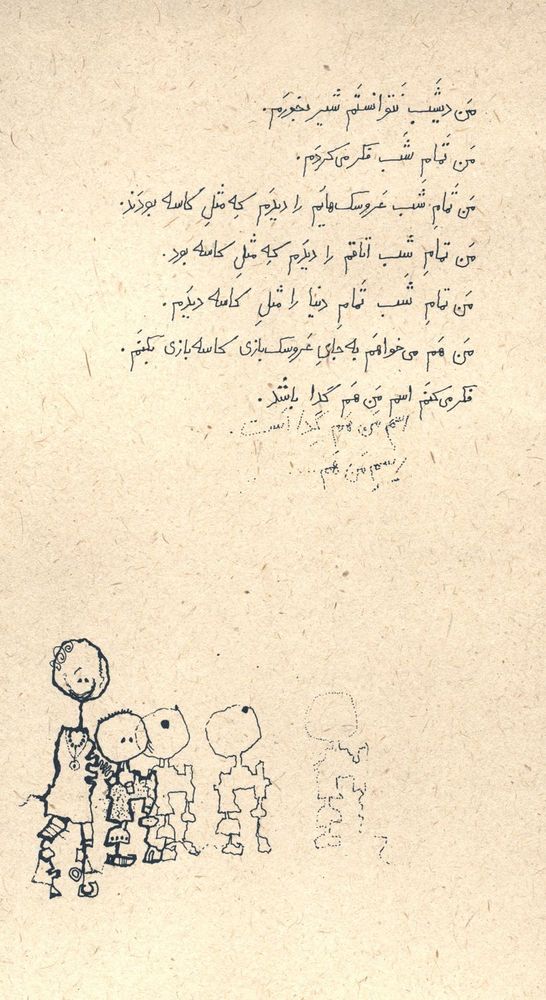 مَن دیشَب نَتَوانستَم شیر بخورَم.
مَن تَمامِ شَب فکر می‌کردَم.
مَن تَمامِ شَب عَروسک‌هایَم را دیدَم کِه مثلِ کاسه بودَند.
مَن تمامِ شَب اتاقم را دیدَم کِه مثلِ کاسه بود.
مَن تمامِ شَب تَمامِ دنیا را مثلِ کاسه دیدَم.
مَن هَم می‌خواهَم بِه جایِ عَروسک‌بازی کاسه‌بازی بکنَم.
فکر می‌کنَم اسم مَن هَم گدا باشَد.
اسم مَن هَم گِدا است.
اسم مَن هَم.....